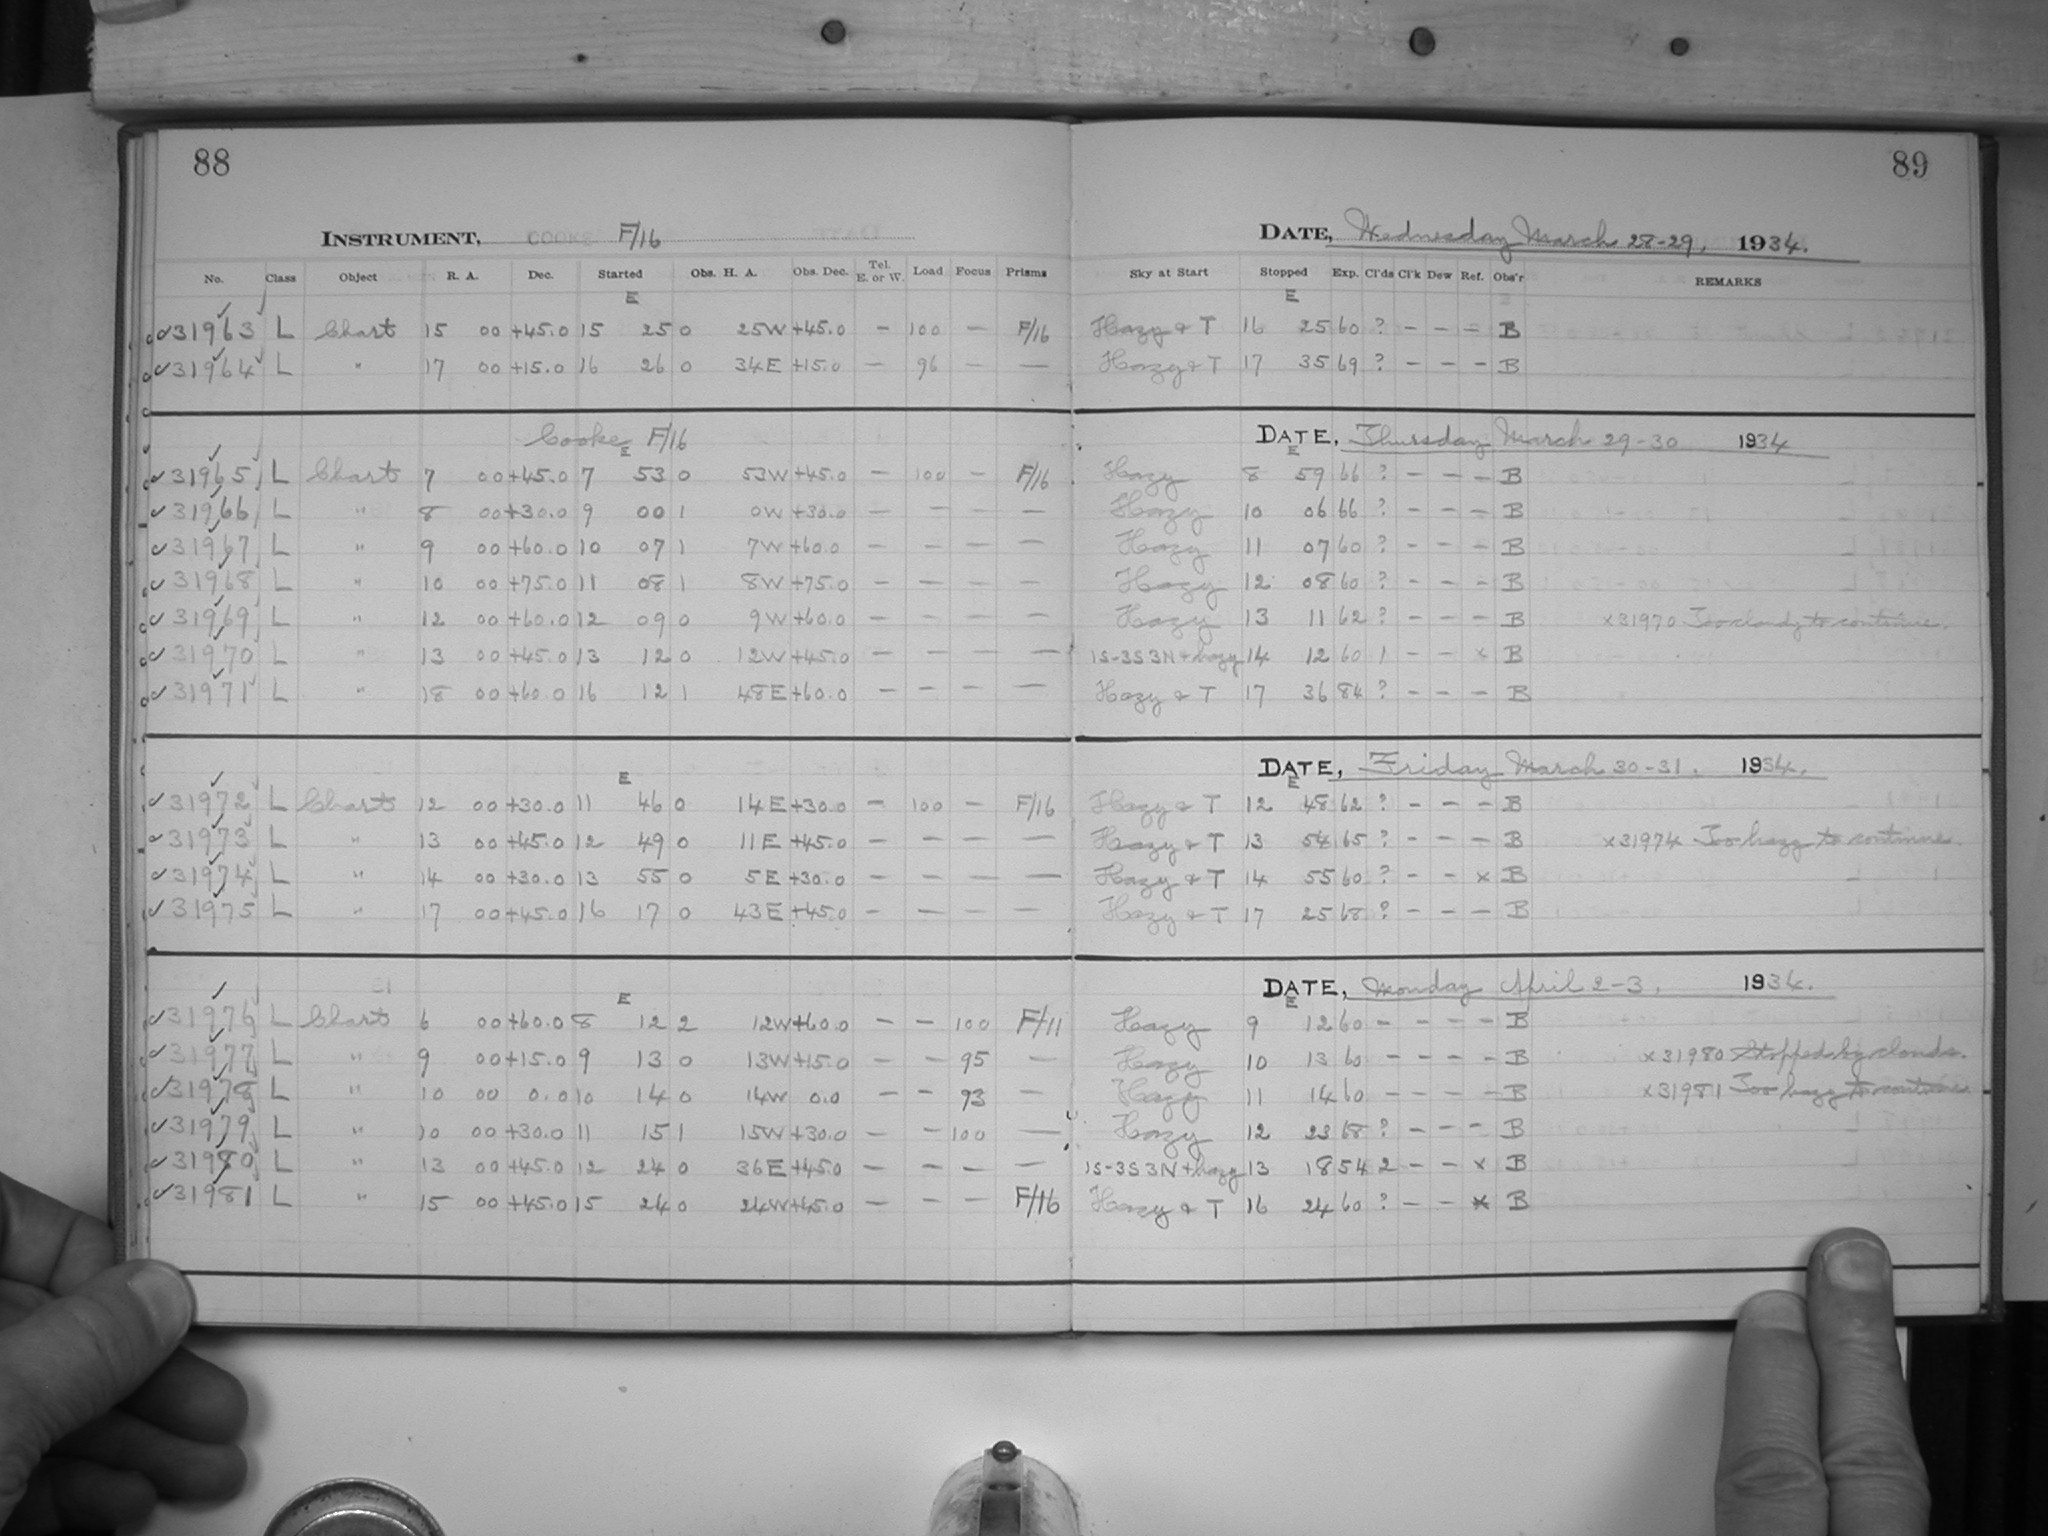 88
INSTRUMENT, COOKE F/16
No. Class Object R. A. Dec. Started Obs. H. A. Obs. Dec. Tel. E. or W. Load Focus Prisms
E
31963 L Chart 15 00 +45.0 15 25 0 25W +45.0 - 100 - F/16
31964 L " 17 00 +15.0 16 26 0 34E +15.0 - 96 - -
Cooke F/16
E
31965 L Chart 7 00 +45.0 7 53 0 53W +45.0 - 100 - F/16
31966 L " 8 00 +30.0 9 00 1 0W +30.0 - - - -
31967 L " 9 00 +60.0 10 07 1 7W +60.0 - - - -
31968 L " 10 00 +75.0 11 08 1 8W +75.0 - - - -
31969 L " 12 00 +60.0 12 09 0 9W +60.0 - - - -
31970 L " 13 00 +45.0 13 12 0 12W +45.0 - - - -
31971 L " 18 00 +60.0 16 12 1 48E +60.0 - - - -
E
31972 L Chart 12 00 +30.0 11 46 0 14E +30.0 - 100 - F/16
31973 L " 13 00 +45.0 12 49 0 11E +45.0 - - - -
31974 L " 14 00 +30.0 13 55 0 5E +30.0 - - - -
31975 L " 17 00 +45.0 16 17 0 43E +45.0 - - - -
E
31976 L Chart 6 00 +60.0 8 12 2 12W +60.0 - - 100 F/11
31977 L " 9 00 +15.0 9 13 0 13W +15.0 - - 95 -
31978 L " 10 00 0.0 10 14 0 14W 0.0 - - 93 -
31979 L " 10 00 +30.0 11 15 1 15W +30.0 - - 100 -
31980 L " 13 00 +45.0 12 24 0 36E +45.0 - - - -
31981 L " 15 00 +45.0 15 24 0 24W +45.0 - - - F/16
89
DATE, Wednesday March 28-29, 1934.
Sky at Start Stopped Exp. Cl'ds Cl'k Dew Ref. Obs'r REMARKS
E
Hazy & T 16 25 60 ? - - - B
Hazy & T 17 35 69 ? - - - B
DATE, Thursday March 29-30 1934
E
Hazy 8 59 66 ? - - - B
Hazy 10 06 66 ? - - - B
Hazy 11 07 60 ? - - - B
Hazy 12 08 60 ? - - - B
Hazy 13 11 62 ? - - - B x31970 Too cloudy to continue.
1S-3S3N+hazy 14 12 60 1 - - x B
Hazy & T 17 36 84 ? - - - B
DATE, Friday March 30-31. 1934.
E
Hazy & T 12 48 62 ? - - - B
Hazy & T 13 54 65 ? - - - B x31974 Too hazy to continue.
Hazy & T 14 55 60 ? - - x B
Hazy & T 17 25 68 ? - - - B
DATE, Monday April 2-3. 1934.
E
Hazy 9 12 60 - - - - B
Hazy 10 13 60 - - - - B x31980 Stopped by clouds.
Hazy 11 14 60 - - - - B x31981 Too hazy to continue
Hazy 12 23 68 ? - - - B
1S-3S3N+hazy 13 18 54 2 - - x B
Hazy & T 16 24 60 ? - - x B